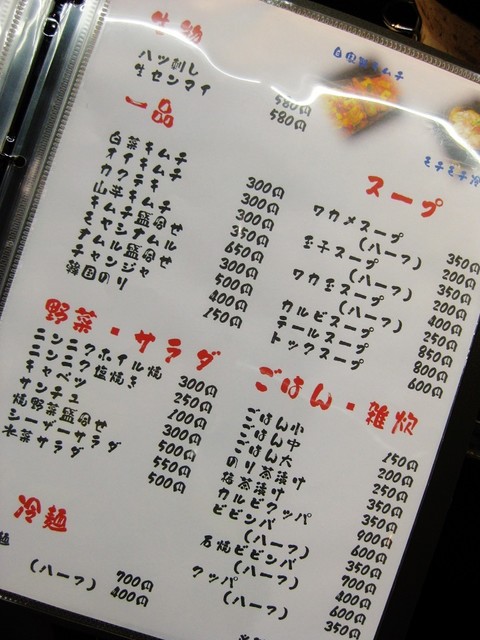 生物
ハツ刺し 580円
生センマイ 580円
一品
白菜キムチ 300円
オイキムチ 300円
カクテキ 300円
山芋キムチ 350円
キムチ盛合せ 650円
モヤシナムル 300円
ナムル盛合せ 500円
チャンジャ 400円
韓国のり 150円
野菜・サラダ
ニンニクホイル焼 300円
ニンニク塩焼き 250円
キャベツ 200円
サンチュ 300円
焼野菜盛合せ 500円
シーザーサラダ 550円
水菜サラダ 500円
冷麺
麺 700円
(ハーフ) 400円
キムチ
モチモチ冷
スープ
ワカメスープ 350円
(ハーフ) 200円
玉子スープ 350円
(ハーフ) 200円
ワカ玉スープ 400円
(ハーフ) 250円
カルビスープ 850円
テールスープ 800円
トックスープ 600円
ごはん・雑炊
ごはん小 150円
ごはん中 200円
ごはん大 250円
のり茶漬け 350円
梅茶漬け 350円
カルビクッパ 900円
ビビンバ 600円
(ハーフ) 350円
石焼ビビンバ 700円
(ハーフ) 400円
クッパ 600円
(ハーフ) 350円